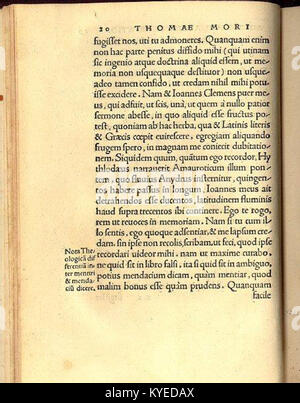 20 THOMAE MORI
fugisset nos, uti tu admoneres. Quanquam enim
non hac parte penitus diffido mihi (qui utinam
sic ingenio atque doctrina aliquid essem, ut me
moria non usquequaque destituor) non usque
adeo tamen confido, ut credam nihil mihi potuis
se excidere. Nam & Ioannes Clemens puer me
us, qui adfuit, ut scis, unà, ut quem à nullo patior
sermone abesse, in quo aliquid esse fructus po
test, quoniam ab hac herba, qua & Latinis literis
& Græcis cœpit euirescere, egregiam aliquando
frugem spero, in magnam me coniecit dubitatio
nem. Siquidem quum, quātum ego recordor, Hy
thlodæus narrauerit Amauroticum illum pon
tem, quo fluuius Anydrus insternitur, quingen
tos habere passus in longum, Ioannes meus ait
detrahendos esse ducentos, latitudinem fluminis
haud supra trecentos ibi continere. Ego te rogo,
rem ut reuoces in memoriam. Nam si tu cum il
lo sentis, ego quoque adsentiar, & me lapsum cre
dam. sin ipse non recolis, scribam, ut feci, quod ipse
recordari uideor mihi. nam ut maxime curabo,
ne quid sit in libro falsi, ita si quid sit in ambiguo,
potius mendacium dicam, quàm mentiar, quod
malim bonus esse quàm prudens. Quanquam
facile
Nota Theo
logicā dif
ferentiā in
ter mentiri
& menda
cium dicere.
alamy
Image ID: KYEDAX
www.alamy.com